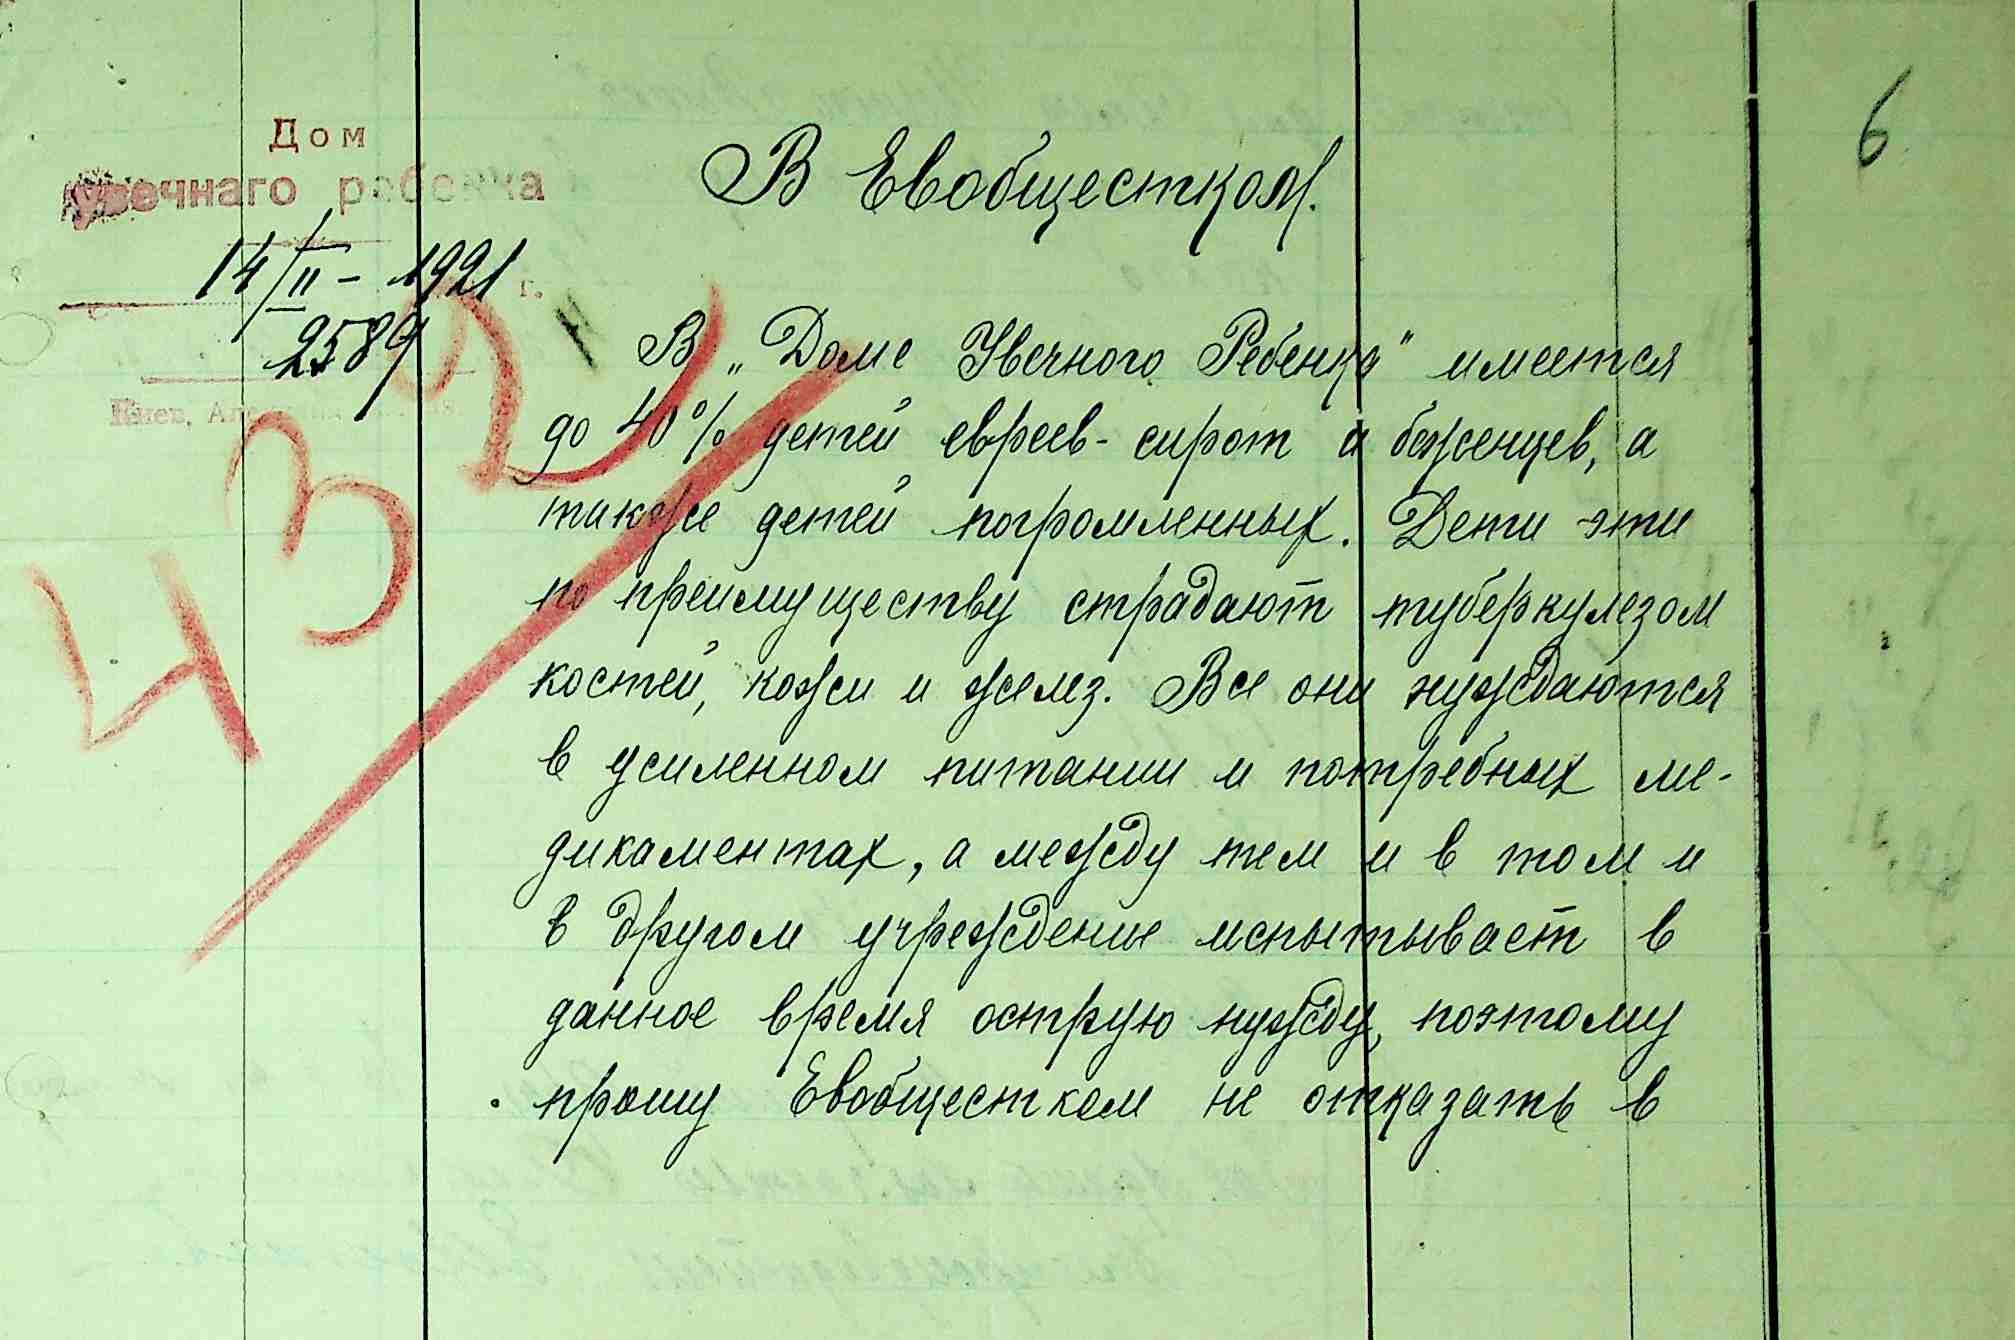 Дом
увечнаго ребенка
14/II - 1921 г.
2589
Киев,
432
6
В Евобщестком.
В „Доме Увечного Ребенка" имеется
до 40% детей евреев-сирот и беженцев, а
также детей погромленных. Дети эти
по преимуществу страдают туберкулезом
костей, кожи и желез. Все они нуждаются
в усиленном питании и потребных ме-
дикаментах, а между тем и в том и
в другом учреждение испытывает в
данное время острую нужду, поэтому
прошу Евобщестком не отказать в